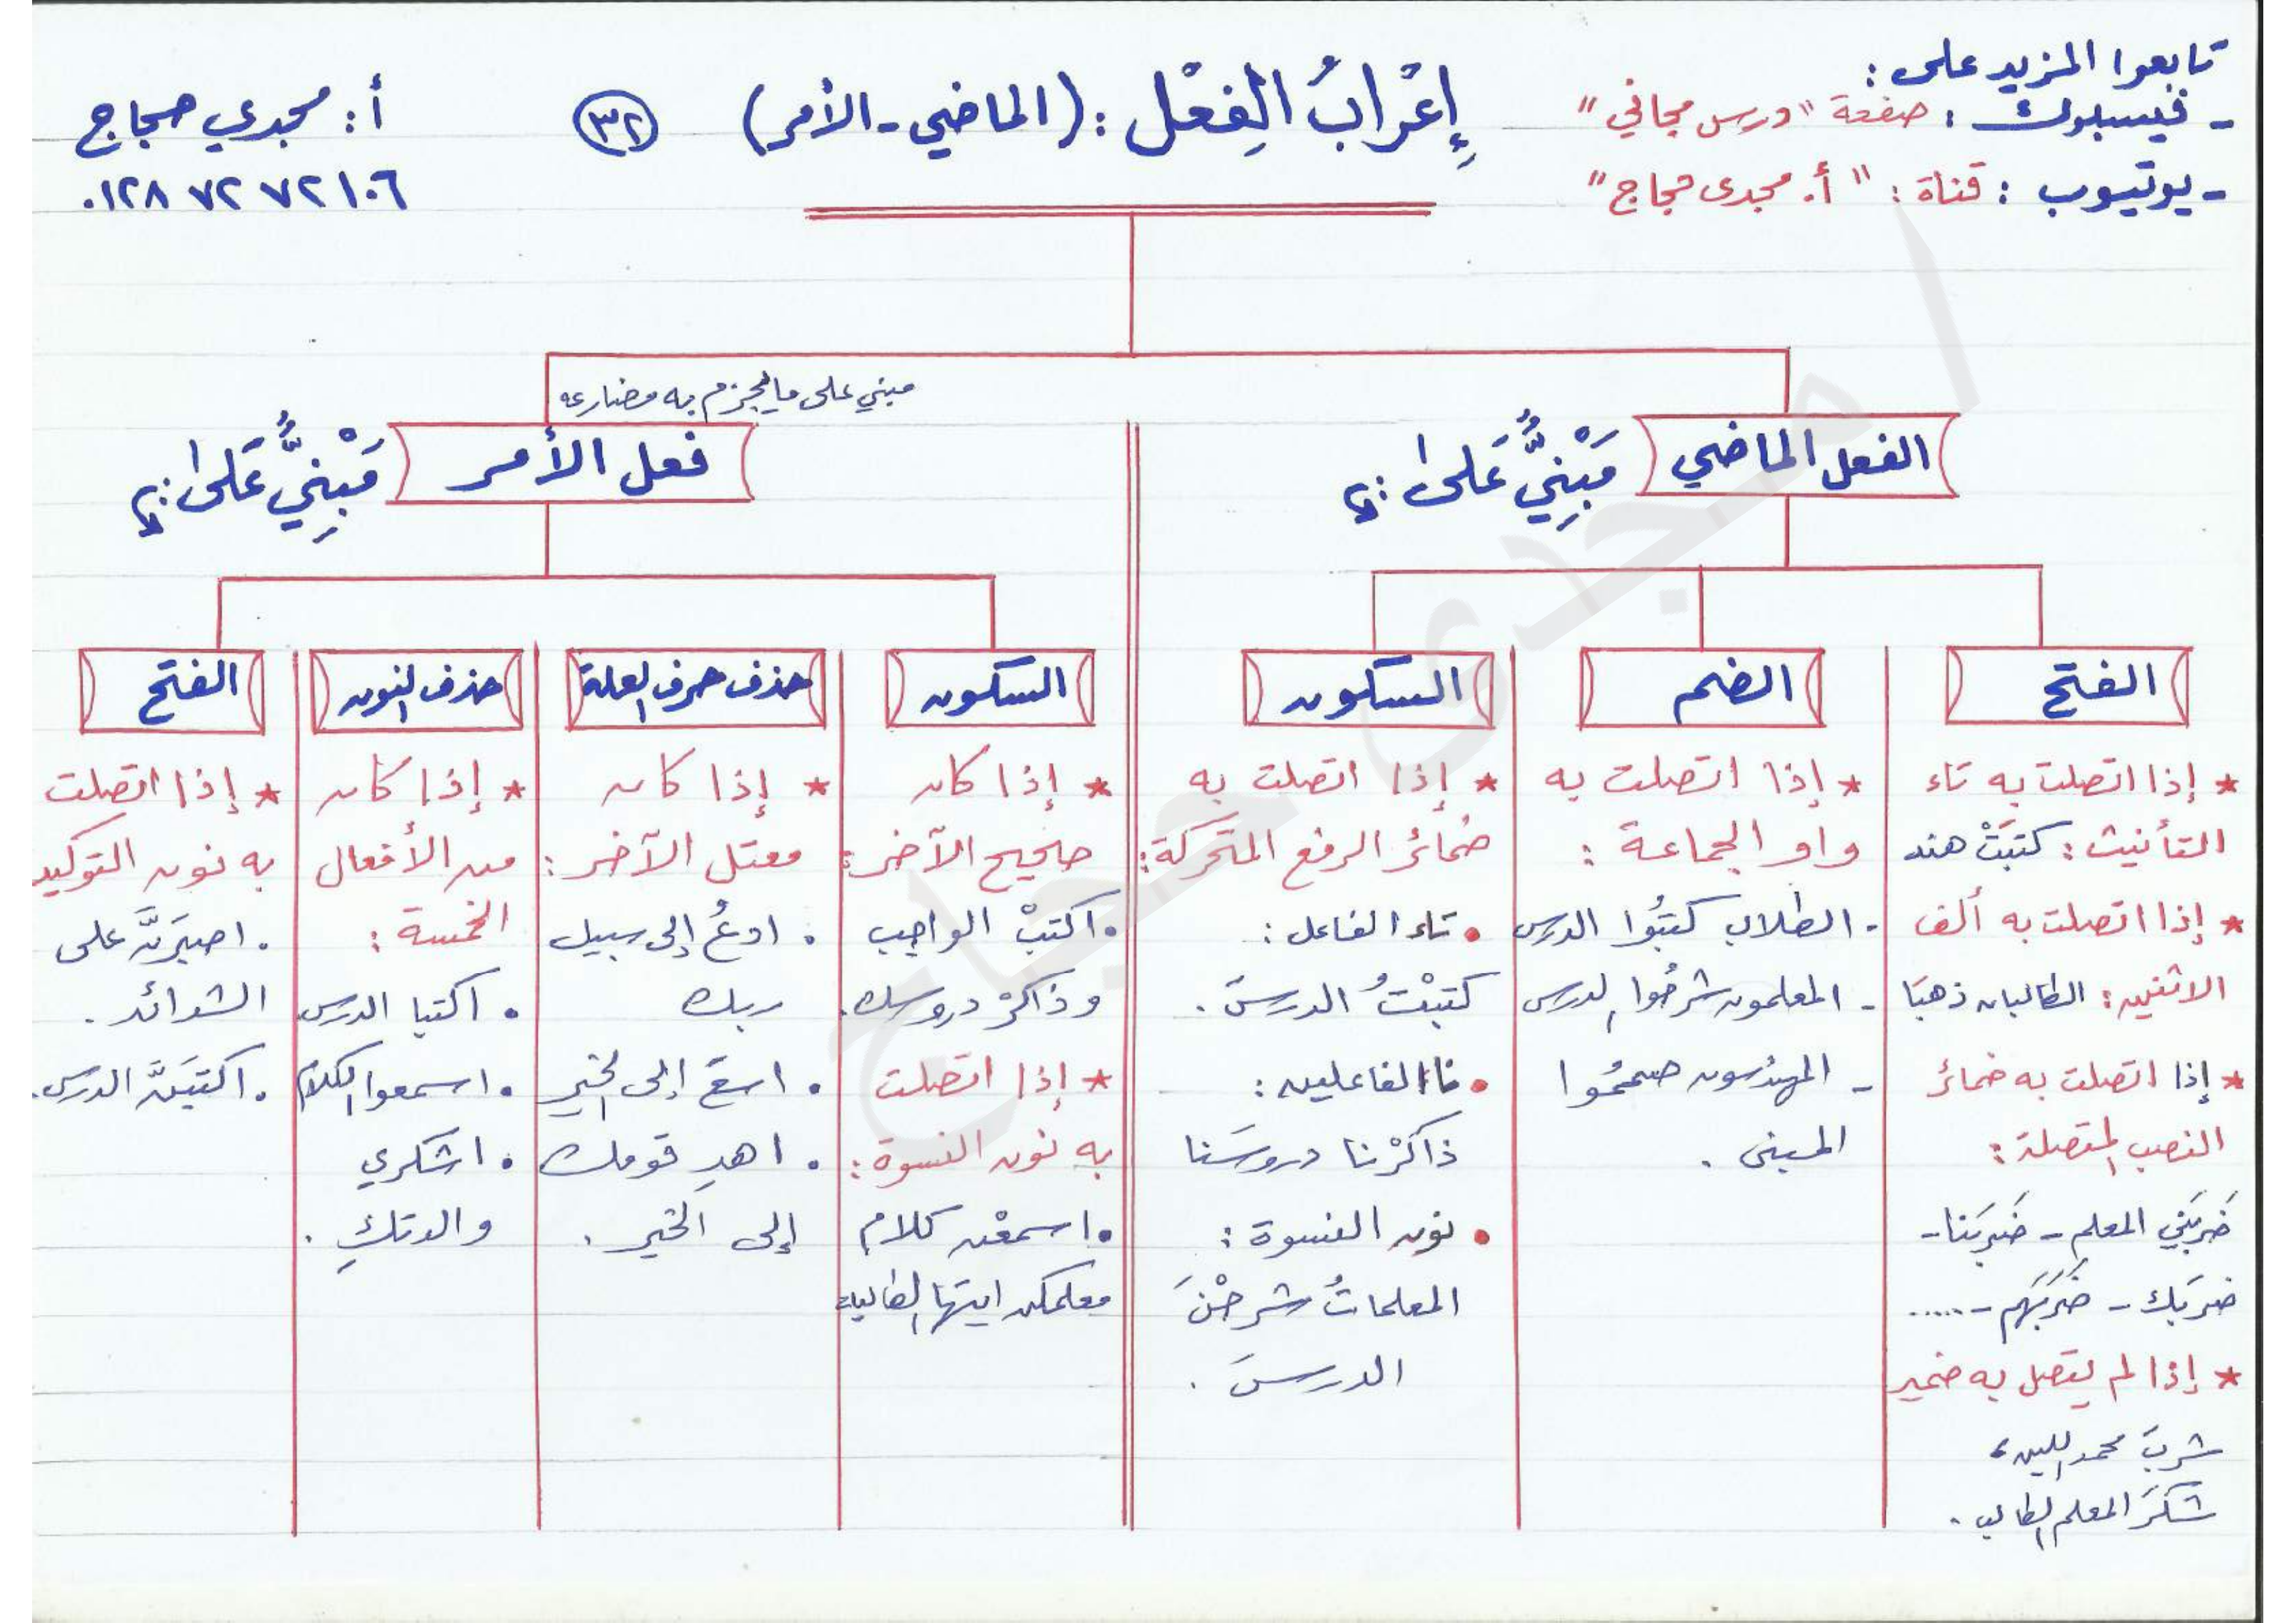 تابعوا المزيد على :
- فيسبوك : صفحة "درس مجاني"
- يوتيوب : قناة : "أ. مجدى حجاج"
إِعْرَابُ الفِعْل : (الماضي - الأمر)
٣٢
أ : مجدي حجاج
٠١٢٨ ٧٢ ٧٢ ١٠٦
الفعل الماضي
مَبْنِيٌّ عَلى :
الفتح
* إذا اتصلت به تاء
التأنيث : كتبَتْ هند
* إذا اتصلت به ألف
الاثنين : الطالبان ذهبَا
* إذا اتصلت به ضمائر
النصب المتصلة :
ضربَني المعلم - ضربَنا -
ضربَك - ضربَهم - .....
* إذا لم يتصل به ضمير
شربَ محمد اللبن،
شكرَ المعلم الطالب .
الضم
* إذا اتصلت به
واو الجماعة :
- الطلاب كتبُوا الدرس
- المعلمون شرحُوا الدرس
- المهندسون صممُوا
المبنى .
السكون
* إذا اتصلت به
ضمائر الرفع المتحركة :
• تاء الفاعل :
كتبْتُ الدرسَ .
• نا الفاعلين :
ذاكرْنا دروسَنا
• نون النسوة :
المعلماتُ شرحْنَ
الدرسَ .
مبني على ما يجزم به مضارعه
فعل الأمر
مَبْنِيٌّ عَلى :
السكون
* إذا كان
صحيح الآخر :
• اكتبْ الواجب
وذاكرْ دروسك .
* إذا اتصلت
به نون النسوة :
• اسمعْن كلام
معلمكن ايتها الطالبات
حذف حرف العلة
* إذا كان
معتل الآخر :
• ادعُ إلى سبيل
ربك
• اسعَ إلى الخير
• اهدِ قومك
إلى الخير .
حذف النون
* إذا كان
من الأفعال
الخمسة :
• اكتبا الدرس
• اسمعوا الكلام
• اشكري
والدتكِ .
الفتح
* إذا اتصلت
به نون التوكيد
• اصبرَنَّ على
الشدائد .
• اكتبَنَّ الدرس .
مجدى حجاج